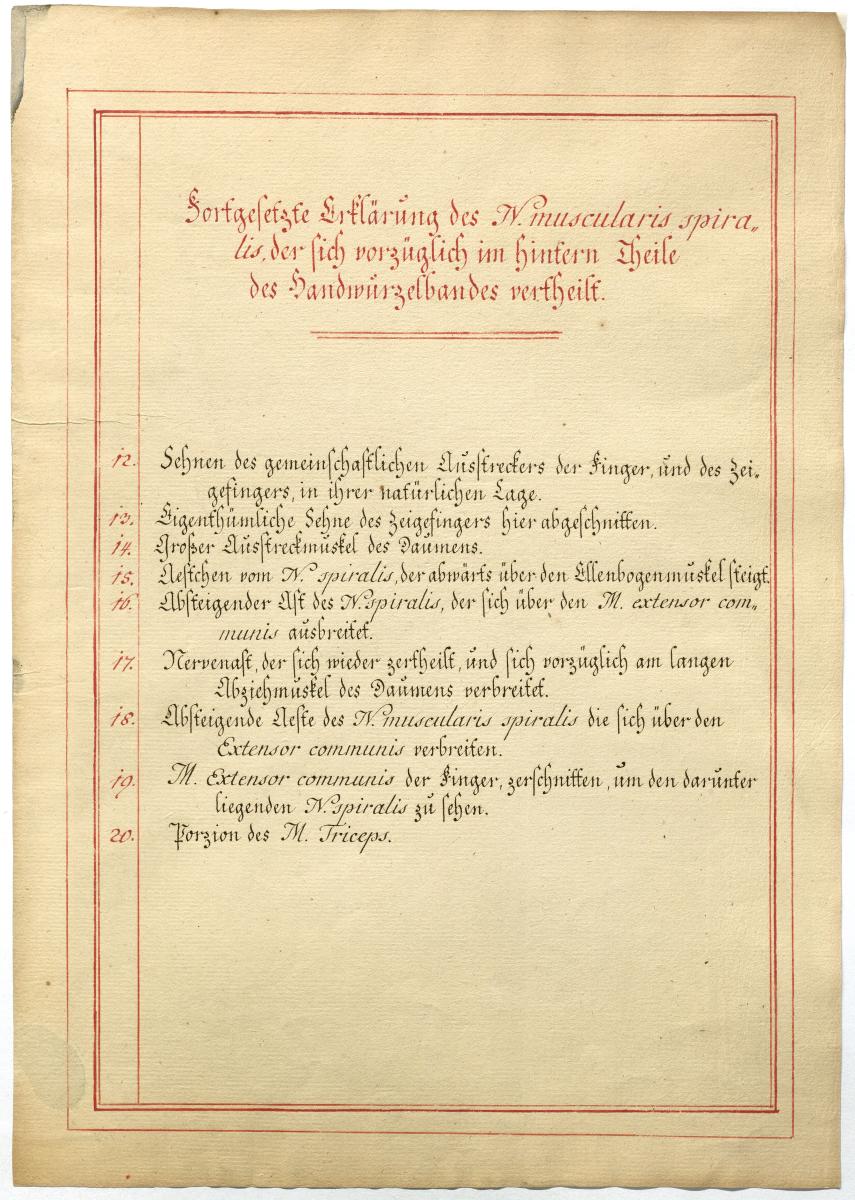 Fortgesetzte Erklärung des N. muscularis spira-
lis, der sich vorzüglich im hintern Theile
des Handwurzelbandes vertheilt.
12. Sehnen des gemeinschaftlichen Ausstreckers der Finger, und des Zei-
gefingers, in ihrer natürlichen Lage.
13. Eigenthümliche Sehne des Zeigefingers hier abgeschnitten.
14. Großer Ausstreckmuskel des Daumens.
15. Aestchen vom N. spiralis, der abwärts über den Ellenbogenmuskel steigt.
16. Absteigender Ast des N. spiralis, der sich über den M. extensor com-
munis ausbreitet.
17. Nervenast, der sich wieder zertheilt, und sich vorzüglich am langen
Abziehmuskel des Daumens verbreitet.
18. Absteigende Aeste des N. muscularis spiralis die sich über den
Extensor communis verbreiten.
19. M. Extensor communis der Finger, zerschnitten, um den darunter
liegenden N. spiralis zu sehen.
20. Porzion des M. Triceps.